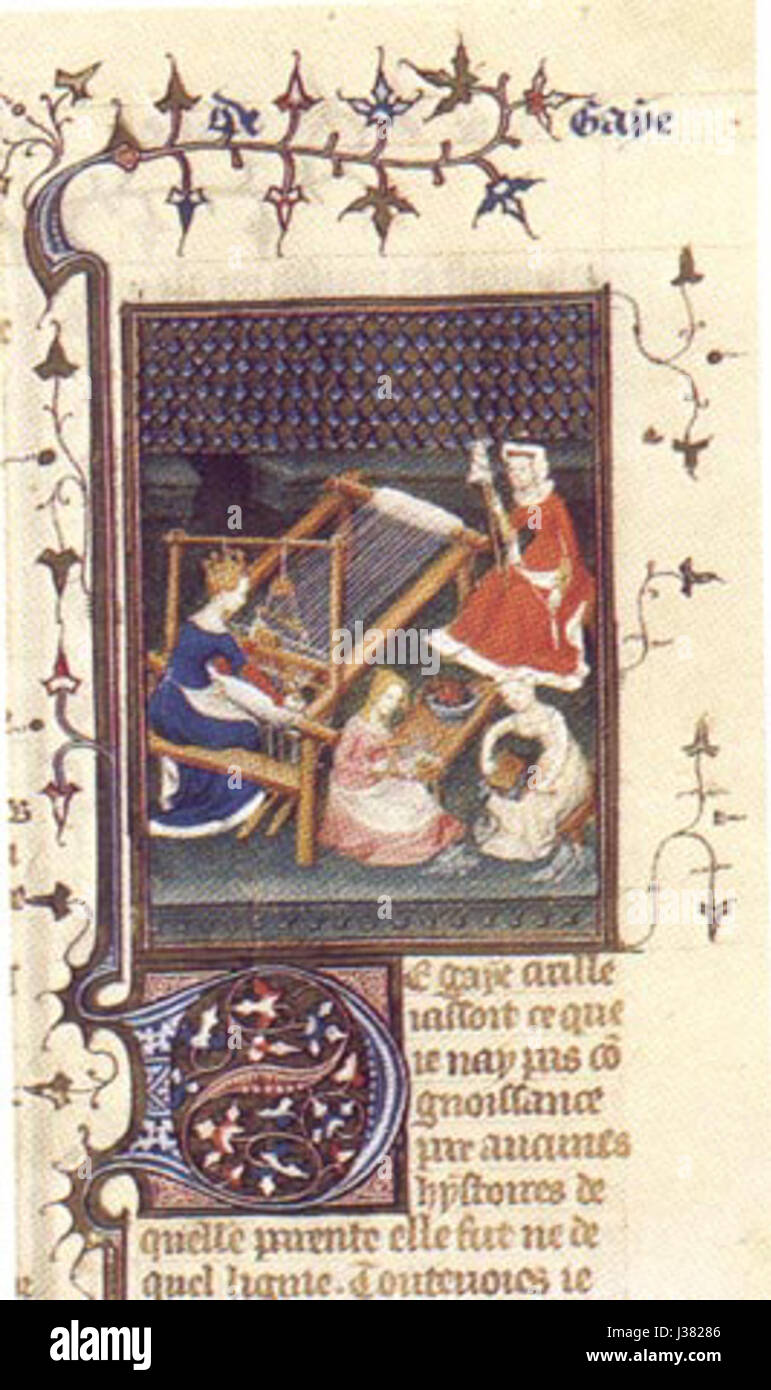 de Gaye
E gaye cirille
iassoit ce que
ie nay pas cō
gnoissance
par aucunes
hystoires de
quelle parente elle fut ne de
quel lignie. Toutevoies ie
alamy
alamy
Image ID: J38286
www.alamy.com